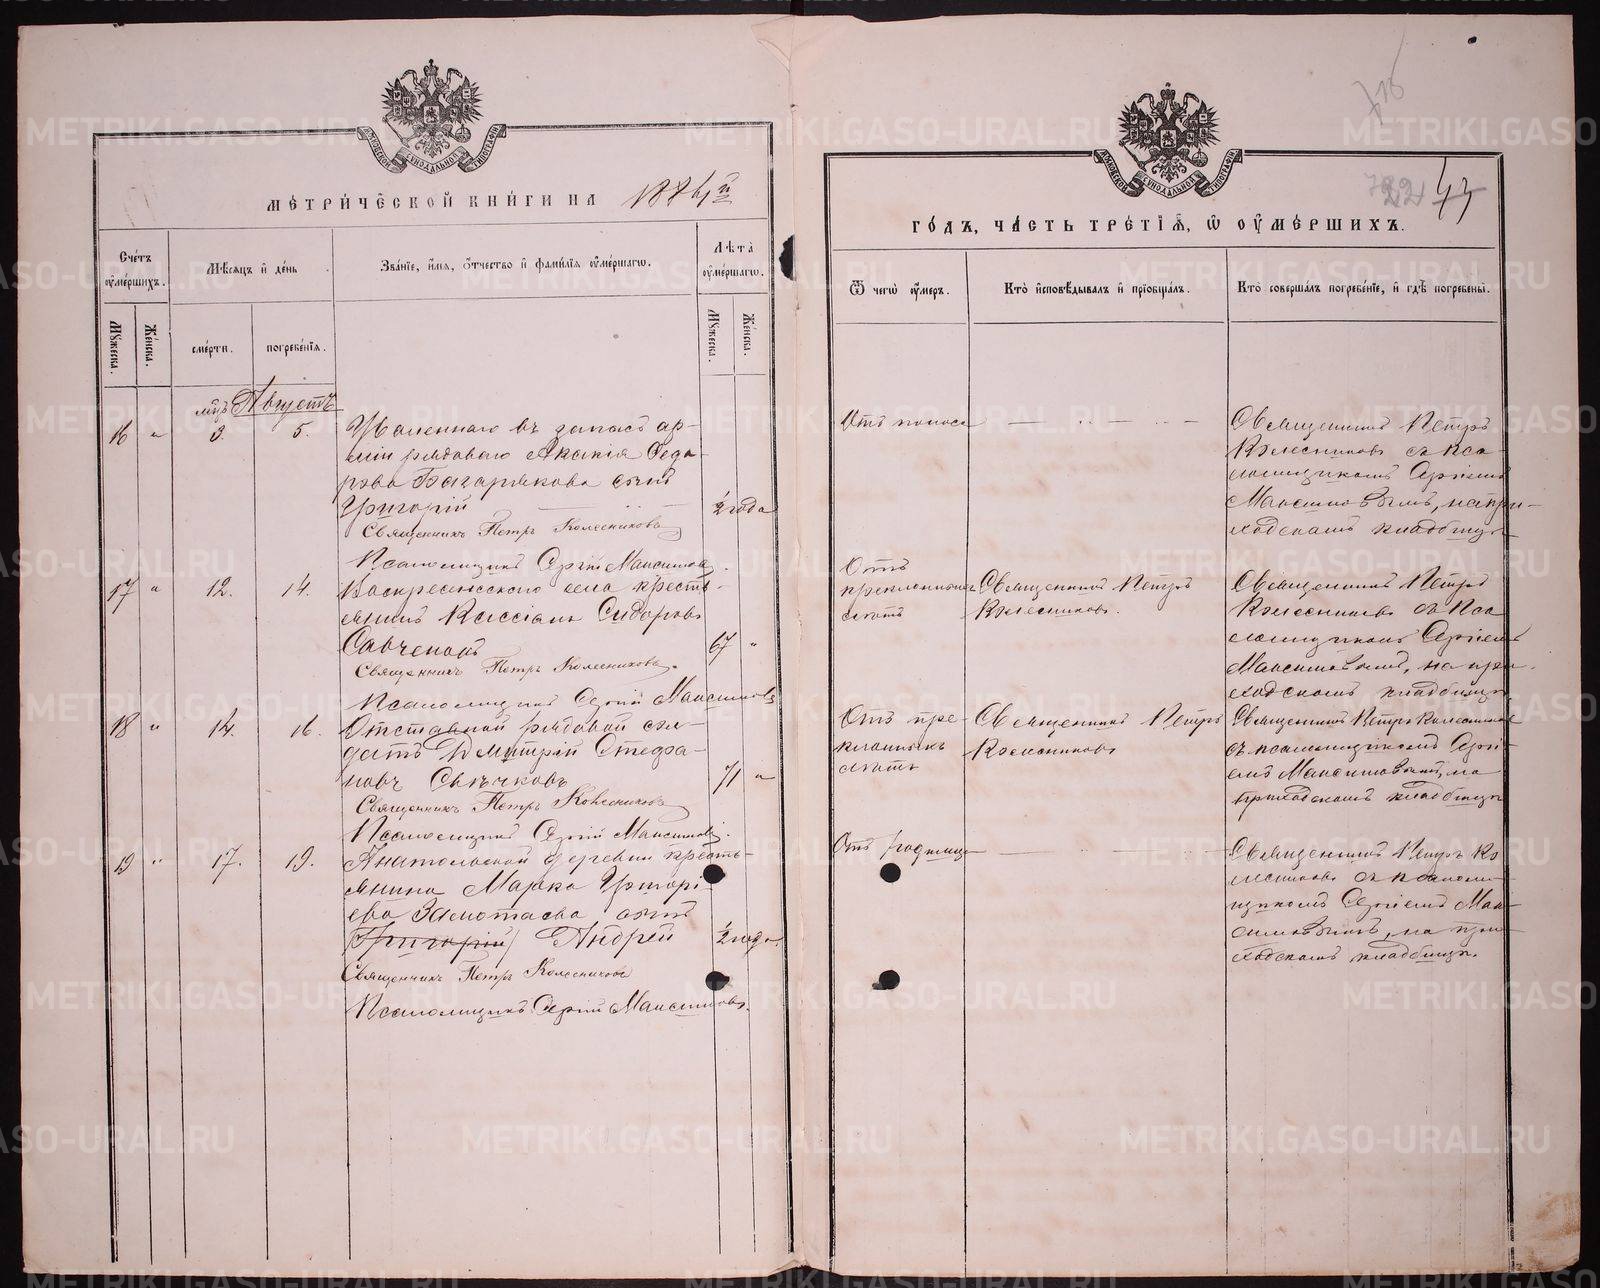 МЕТРИЧЕСКОЙ КНИГИ НА 1876й
Счетъ оумершихъ.
Мѣсяцъ и день
Званіе, имя, отчество и фамилія оумершагω.
Лѣта оумершагω.
Мужеска.
Женска.
смерти.
погребенія.
Мужеска.
Женска.
мцъ Августъ
16 " 3. 5. Уволеннаго въ запасъ ар-
міи рядоваго Акакія Федо-
рова Багарякова сынъ
Григорій ½ года
Священникъ Петръ Колесниковъ
Псаломщикъ Сергій Максимовъ.
17 " 12. 14. Воскресенскаго села кресть-
янинъ Кассіанъ Сидоровъ
Савченковъ 67 "
Священникъ Петръ Колесниковъ.
Псаломщикъ Сергій Максимовъ
18 " 14. 16. Отставной рядовой сол-
датъ Димитрій Стефа-
новъ Свѣчковъ 71 "
Священникъ Петръ Колесниковъ
Псаломщикъ Сергій Максимовъ.
19 " 17. 19. Анатольской деревни кресть-
янина Марка Григорі-
ева Замотаева сынъ
(Григорій) Андрей ½ года.
Священникъ Петръ Колесниковъ
Псаломщикъ Сергій Максимовъ.
МОСКОВСКОЙ СУНОДАЛЬНОЙ ТИПОГРАФІИ
716
722 47
ГОДЪ, ЧАСТЬ ТРЕТІЯ, Ѡ ОУМЕРШИХЪ.
Ѿ чегω оумеръ.
Кто исповѣдывалъ и пріобщалъ.
Кто совершалъ погребеніе, и гдѣ погребены.
Отъ поноса
Священникъ Петръ
Колесниковъ съ пса-
ломщикомъ Сергіемъ
Максимовымъ, на при-
ходскомъ кладбищѣ
Отъ
преклонныхъ
лѣтъ
Священникъ Петръ
Колесниковъ.
Священникъ Петръ
Колесниковъ съ пса
ломщикомъ Сергіемъ
Максимовымъ, на при-
ходскомъ кладбищѣ
Отъ пре-
клонныхъ
лѣтъ
Священникъ Петръ
Колесниковъ
Священникъ Петръ Колесниковъ
съ псаломщикомъ Сергі-
емъ Максимовымъ, на
приходскомъ кладбищѣ
Отъ родимца
Священникъ Петръ Ко
лесниковъ съ псалом-
щикомъ Сергіемъ Мак-
симовымъ, на при-
ходскомъ кладбищѣ.
METRIKI.GASO-URAL.RU